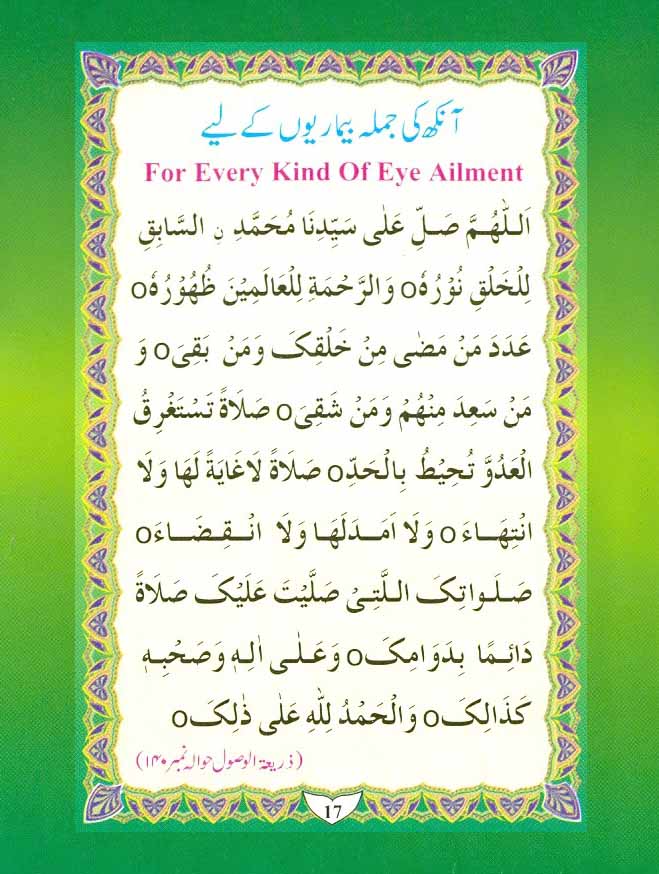 آنکھ کی جملہ بیماریوں کے لیے
For Every Kind Of Eye Ailment
اَللّٰهُمَّ صَلِّ عَلٰى سَيِّدِنَا مُحَمَّدِ نِ السَّابِقِ
لِلْخَلْقِ نُوْرُهٗo وَالرَّحْمَةِ لِلْعَالَمِيْنَ ظُهُوْرُهٗo
عَدَدَ مَنْ مَضٰى مِنْ خَلْقِکَ وَمَنْ بَقِىَo وَ
مَنْ سَعِدَ مِنْهُمْ وَمَنْ شَقِىَo صَلَاةً تَسْتَغْرِقُ
الْعَدُوَّ تُحِيْطُ بِالْحَدِّo صَلَاةً لَاغَايَةً لَهَا وَلَا
انْتِهَاءَo وَلَا اَمَدَلَهَا وَلَا انْقِضَاءَo
صَلَواتِکَ الَّتِىْ صَلَّيْتَ عَلَيْکَ صَلَاةً
دَائِمًا بِدَوَامِکَo وَعَلٰى اٰلِهٖ وَصَحْبِهٖ
کَذَالِکَo وَالْحَمْدُ لِلّٰهِ عَلٰى ذٰلِکَo
(ذریعۃ الوصول حوالہ نمبر ۱۴۰)
17